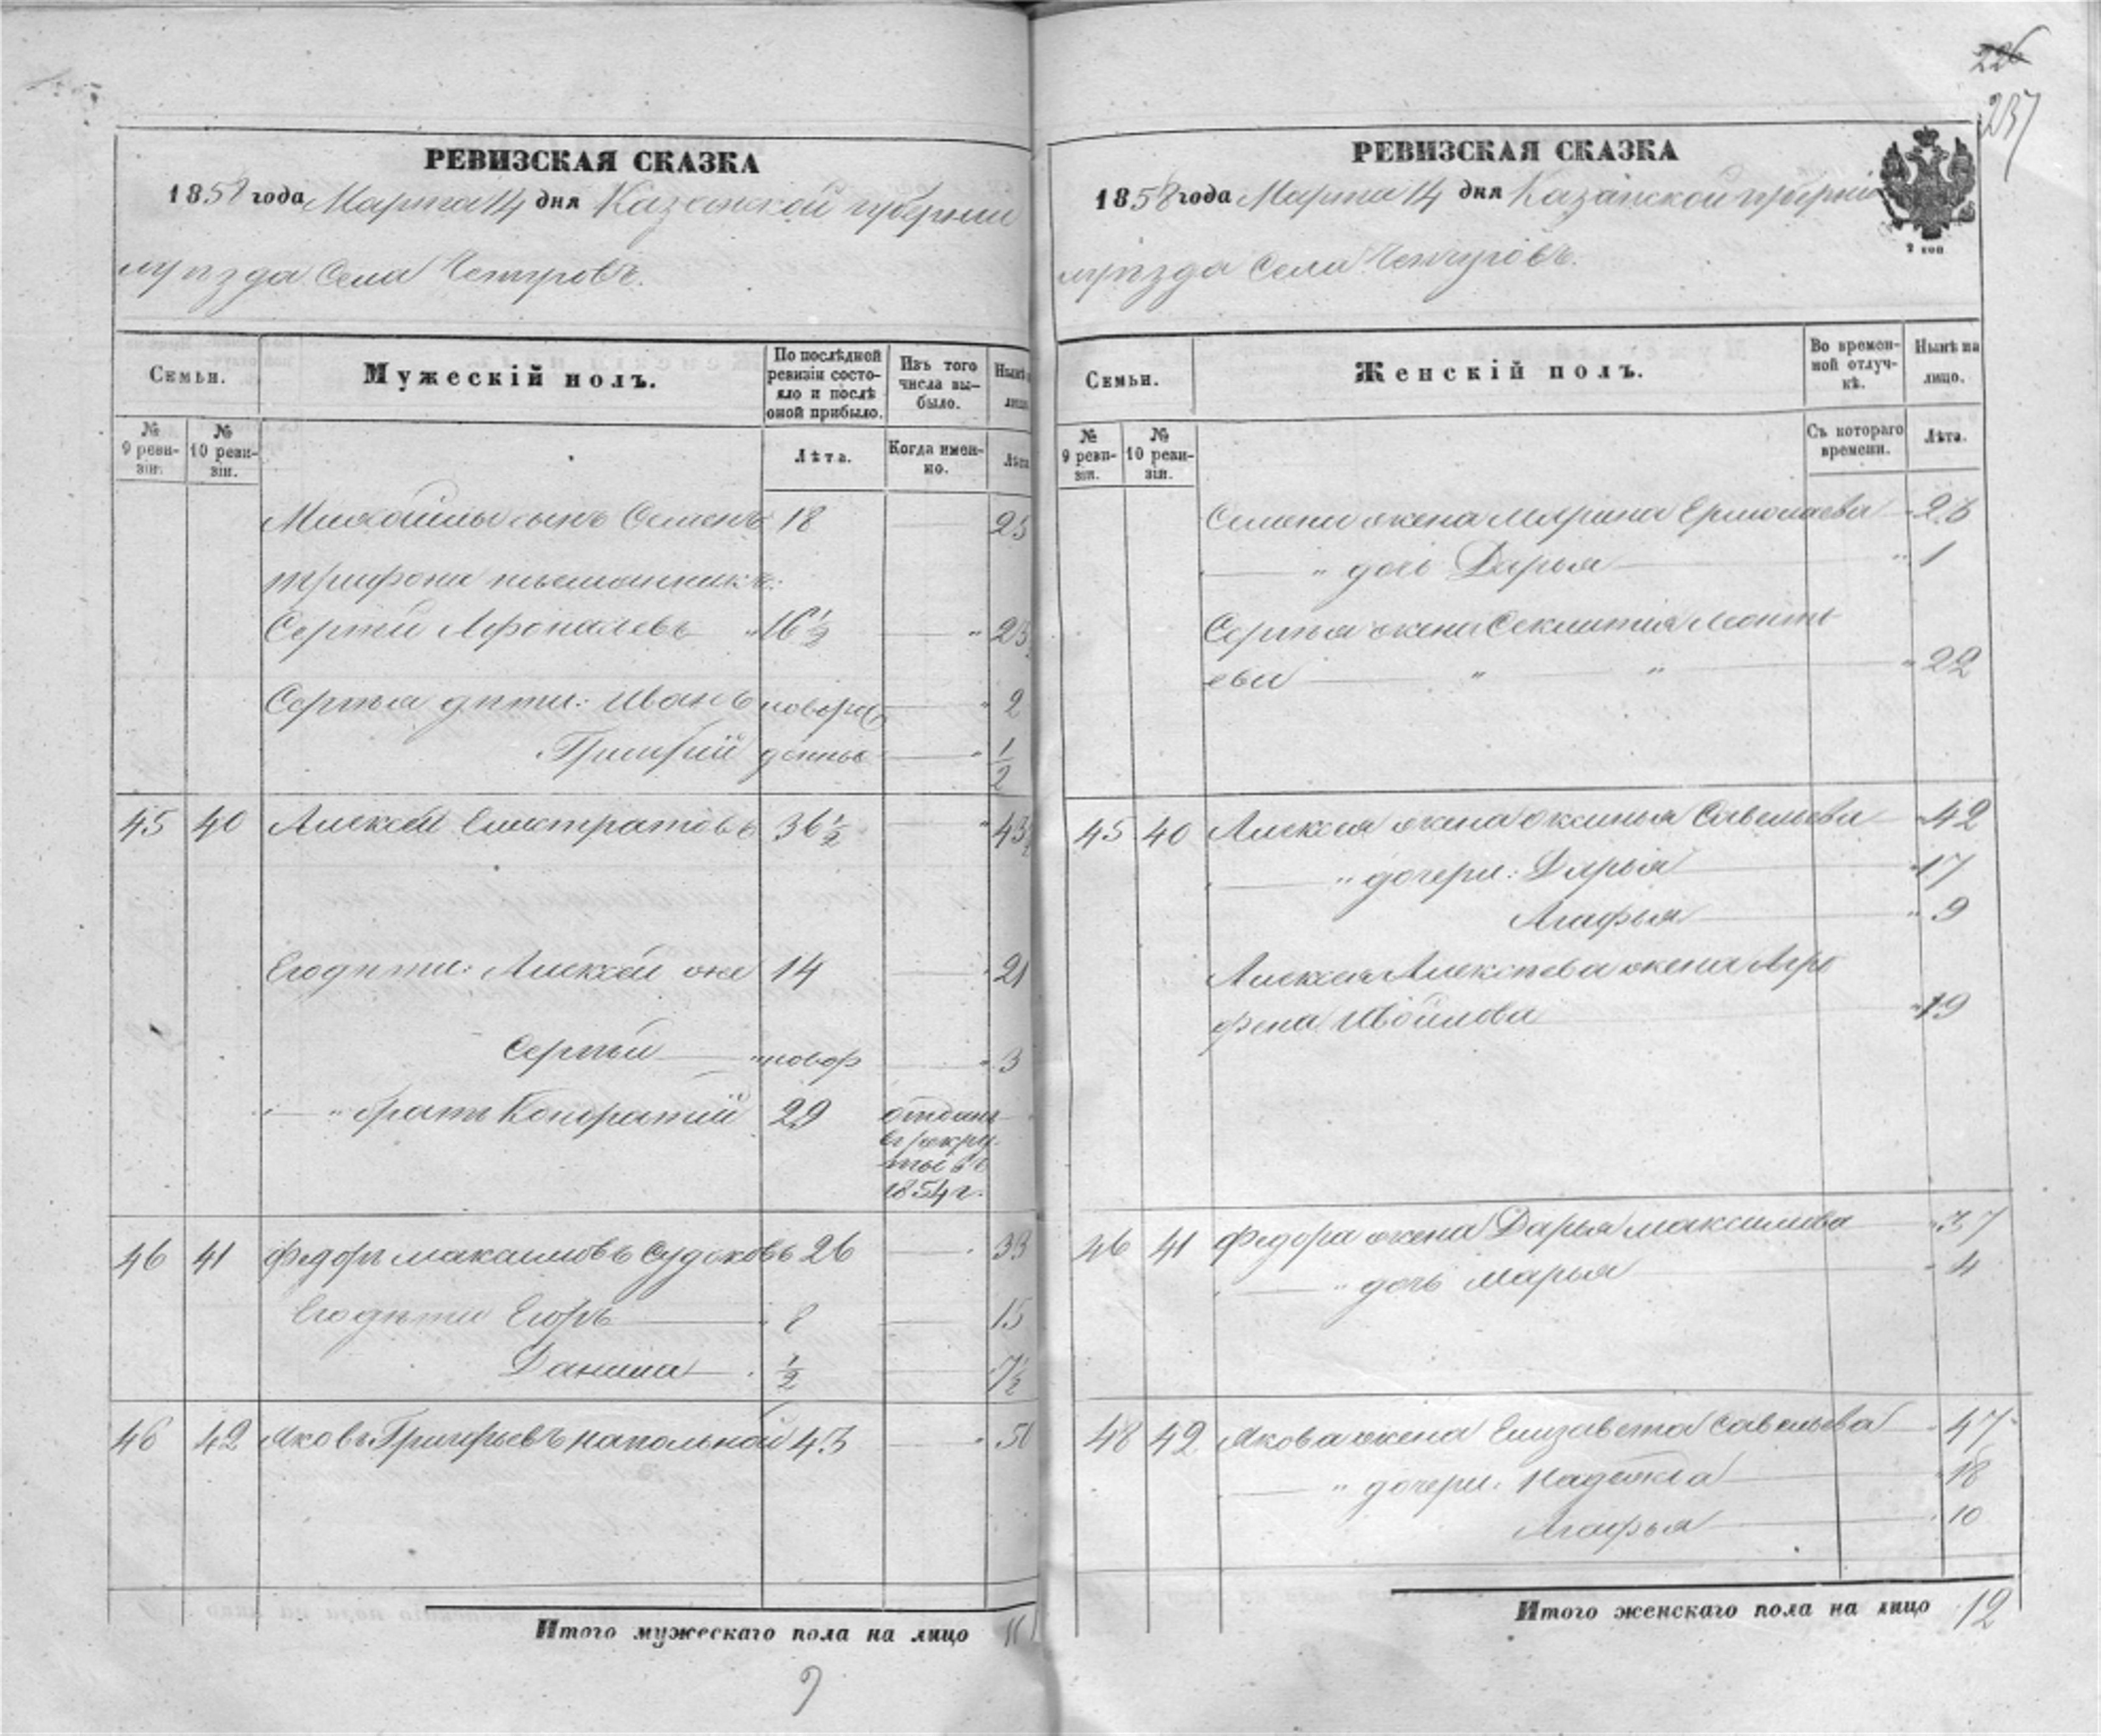 226
237
РЕВИЗСКАЯ СКАЗКА
1858 года Марта 14 дня Казанской губернии
уѣзда села
Семьи.
Мужескій полъ.
По послѣдней ревизіи состояло и послѣ оной прибыло.
Изъ того числа выбыло.
Нынѣ
лицо
№ 9 ревизіи.
№ 10 ревизіи.
Лѣта.
Когда именно.
Лѣта
Михайлы сынъ Семенъ 18 25
Трифона племянникъ:
Сергѣй 16 1/2 23
Сергѣя дѣти: Иванъ новорож 2
Григорій денные 1/2
45 40 Алексѣй Елистратовъ 36 1/2 43
Его дѣти: Алексѣй 14 21
Сергѣй новор 3
" братъ Кондратій 29 отданъ
въ рекру-
ты въ
1854 г.
46 41 Федоръ Максимовъ Судоковъ 26 33
Его дѣти Егоръ 8 15
Данила 1/2 7 1/2
46 42 Яковъ Григорьевъ Напольной 43 50
Итого мужескаго пола на лицо 11
РЕВИЗСКАЯ СКАЗКА
1858 года Марта 14 дня Казанской губерніи
2 коп
уѣзда села
Семьи.
Женскій полъ.
Во временной отлучкѣ.
Нынѣ на лицо.
№ 9 ревизіи.
№ 10 ревизіи.
Съ котораго времени.
Лѣта.
Семена жена Марина Ермолаева 26
" дочь Дарья " 1
Сергѣя жена
ева " " " 22
45 40 Алексѣя жена Оксинья Савельева 42
" дочери: Дарья 17
Агафья " 9
Алексѣя Алексѣева жена Агра
фена 19
46 41 Федора жена Дарья Максимова 37
" дочь Марья 4
48 42 Якова жена Елизавета Савельева 47
" дочери: Надежда 18
Агафья 10
Итого женскаго пола на лицо 12